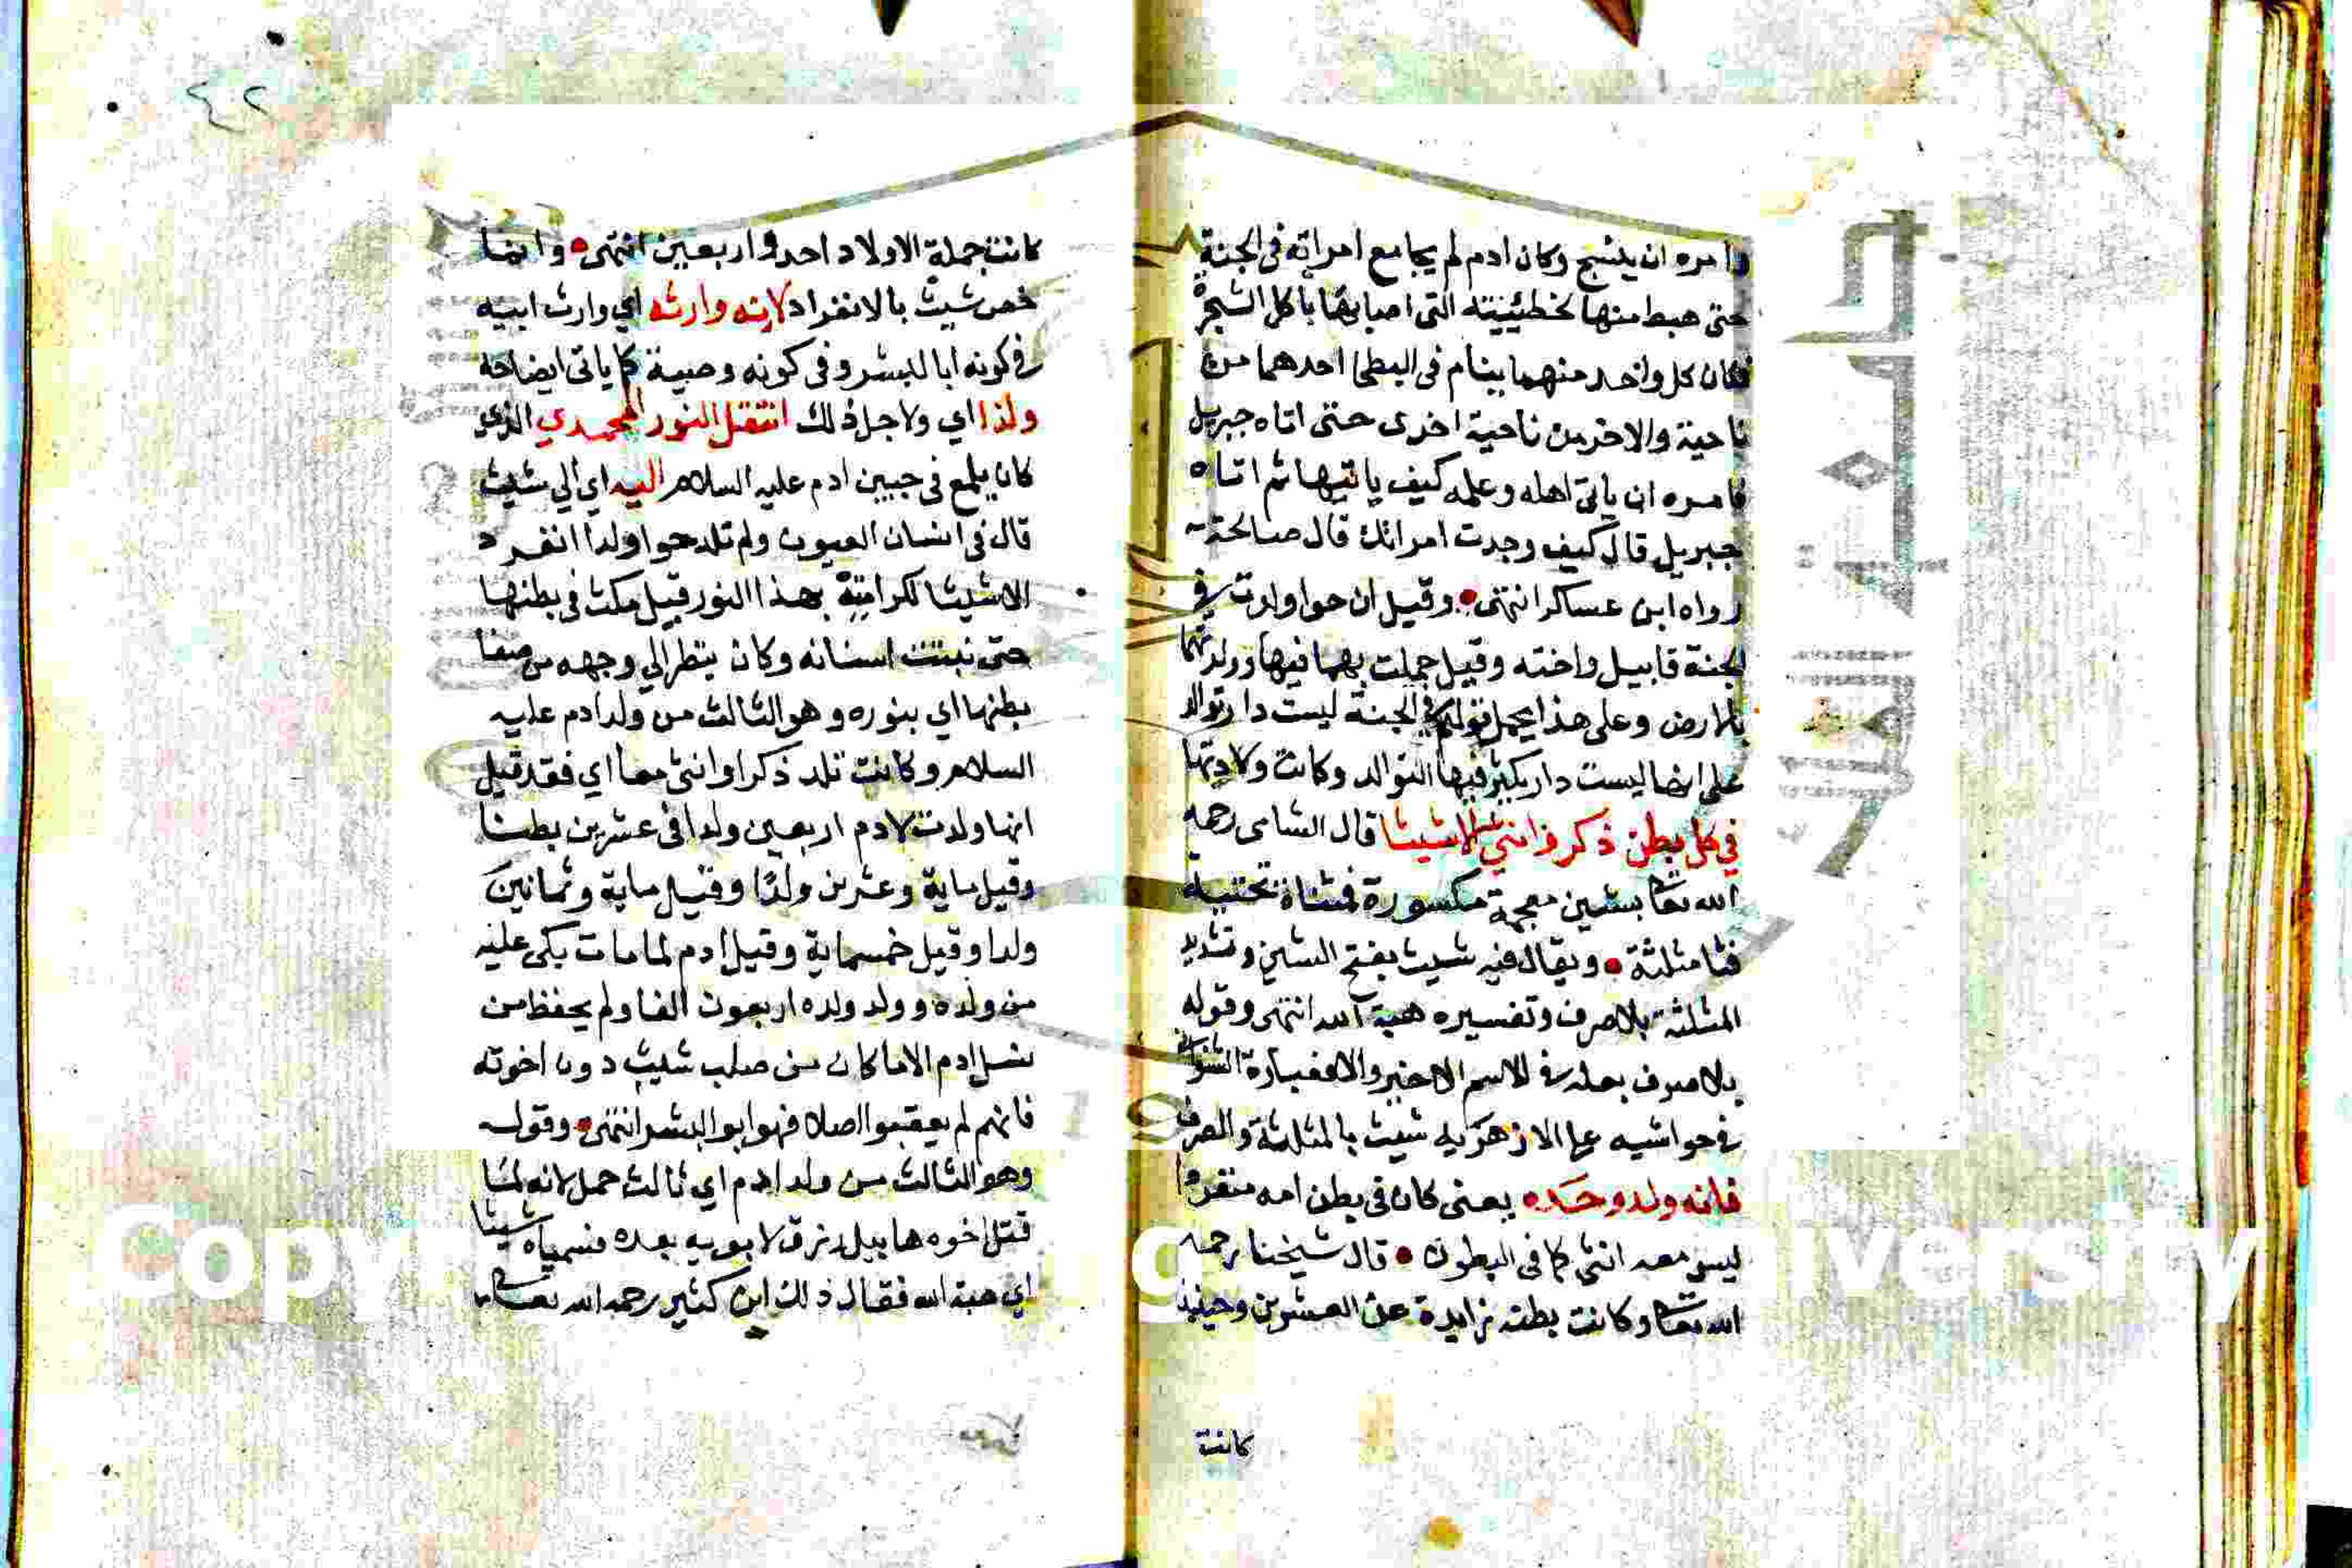 وامره ان ينسج وكان ادم لم يجامع امراته فى الجنة
حتى هبط منها لخطيئيته التى اصابها باكل الشجرة
فكان كل واحد منهما ينام فى البطحا احدهما من
ناحية والاخر من ناحية اخرى حتى اتاه جبريل
فامره ان ياتى اهله وعلمه كيف ياتيها ثم اتاه
جبريل قال كيف وجدت امراتك قال صالحة
رواه ابن عساكر انتهى وقيل ان حوا ولدت في
الجنة قابيل واخته وقيل حملت بهما فيها وولدتهما
بالارض وعلى هذا يحمل قولهم الجنة ليست دار توالد
على انها ليست دار يكثر فيها التوالد وكانت ولادتها
في كل بطن ذكر وانثي الا شيثا قال الشامى رحمه
الله تعا بشين معجمة مكسورة فمثناة تحتية
فثا مثلثة ويقال فيه شيث بفتح الشين وتشديد
المثلثة بلا صرف وتفسيره هبة الله انتهى وقوله
بلا صرف بعله في الاسم الاخير والا فعبارة الشنوانى
فى حواشيه على الازهرية شيث بالمثلثة والصرف
فانه ولد وحده يعنى كان فى بطن امه منفردا
ليس معه انثى كما فى البطون قال شيخنا رحمه
الله تعا وكانت بطنه زايدة على العشرين وحينيذ
كانت
٤٢
كانت جملة الاولاد احد واربعين انتهى وانما
خص شيث بالانفراد لانه وارثه اي وارث ابيه
فى كونه ابا للبشر وفى كونه وصية كما ياتى ايضاحه
ولذا اي ولاجل ذلك انتقل النور المحمدي الذي
كان يلمع فى جبين ادم عليه السلام اليه اي الي شيث
قال فى انسان العيون ولم تلد حوا ولدا انفرد
الا شيثا لكرامته بهذا النور قيل مكث فى بطنها
حتى نبتت اسنانه وكان ينظر الي وجهه من صفا
بطنها اي بنوره وهو الثالث من ولد ادم عليه
السلام وكانت تلد ذكرا وانثى معا اي فقد قيل
انها ولدت لادم اربعين ولدا فى عشرين بطنا
وقيل ماية وعشرين ولدا وقيل ماية وثمانين
ولدا وقيل خمسماية وقيل ادم لما مات بكى عليه
من ولده وولد ولده اربعون الفا ولم يحفظ من
نسل ادم الا ما كان من صلب شيث دون اخوته
فانهم لم يعقبوا اصلا فهو ابو البشر انتهى وقوله
وهو الثالث من ولد ادم اي ثالث حمل لانه لما
قتل اخوه هابيل رزق لابويه بعده فسمياه شيثا
اي هبة الله فقال ذلك ابن كثير رحمه الله تعالى